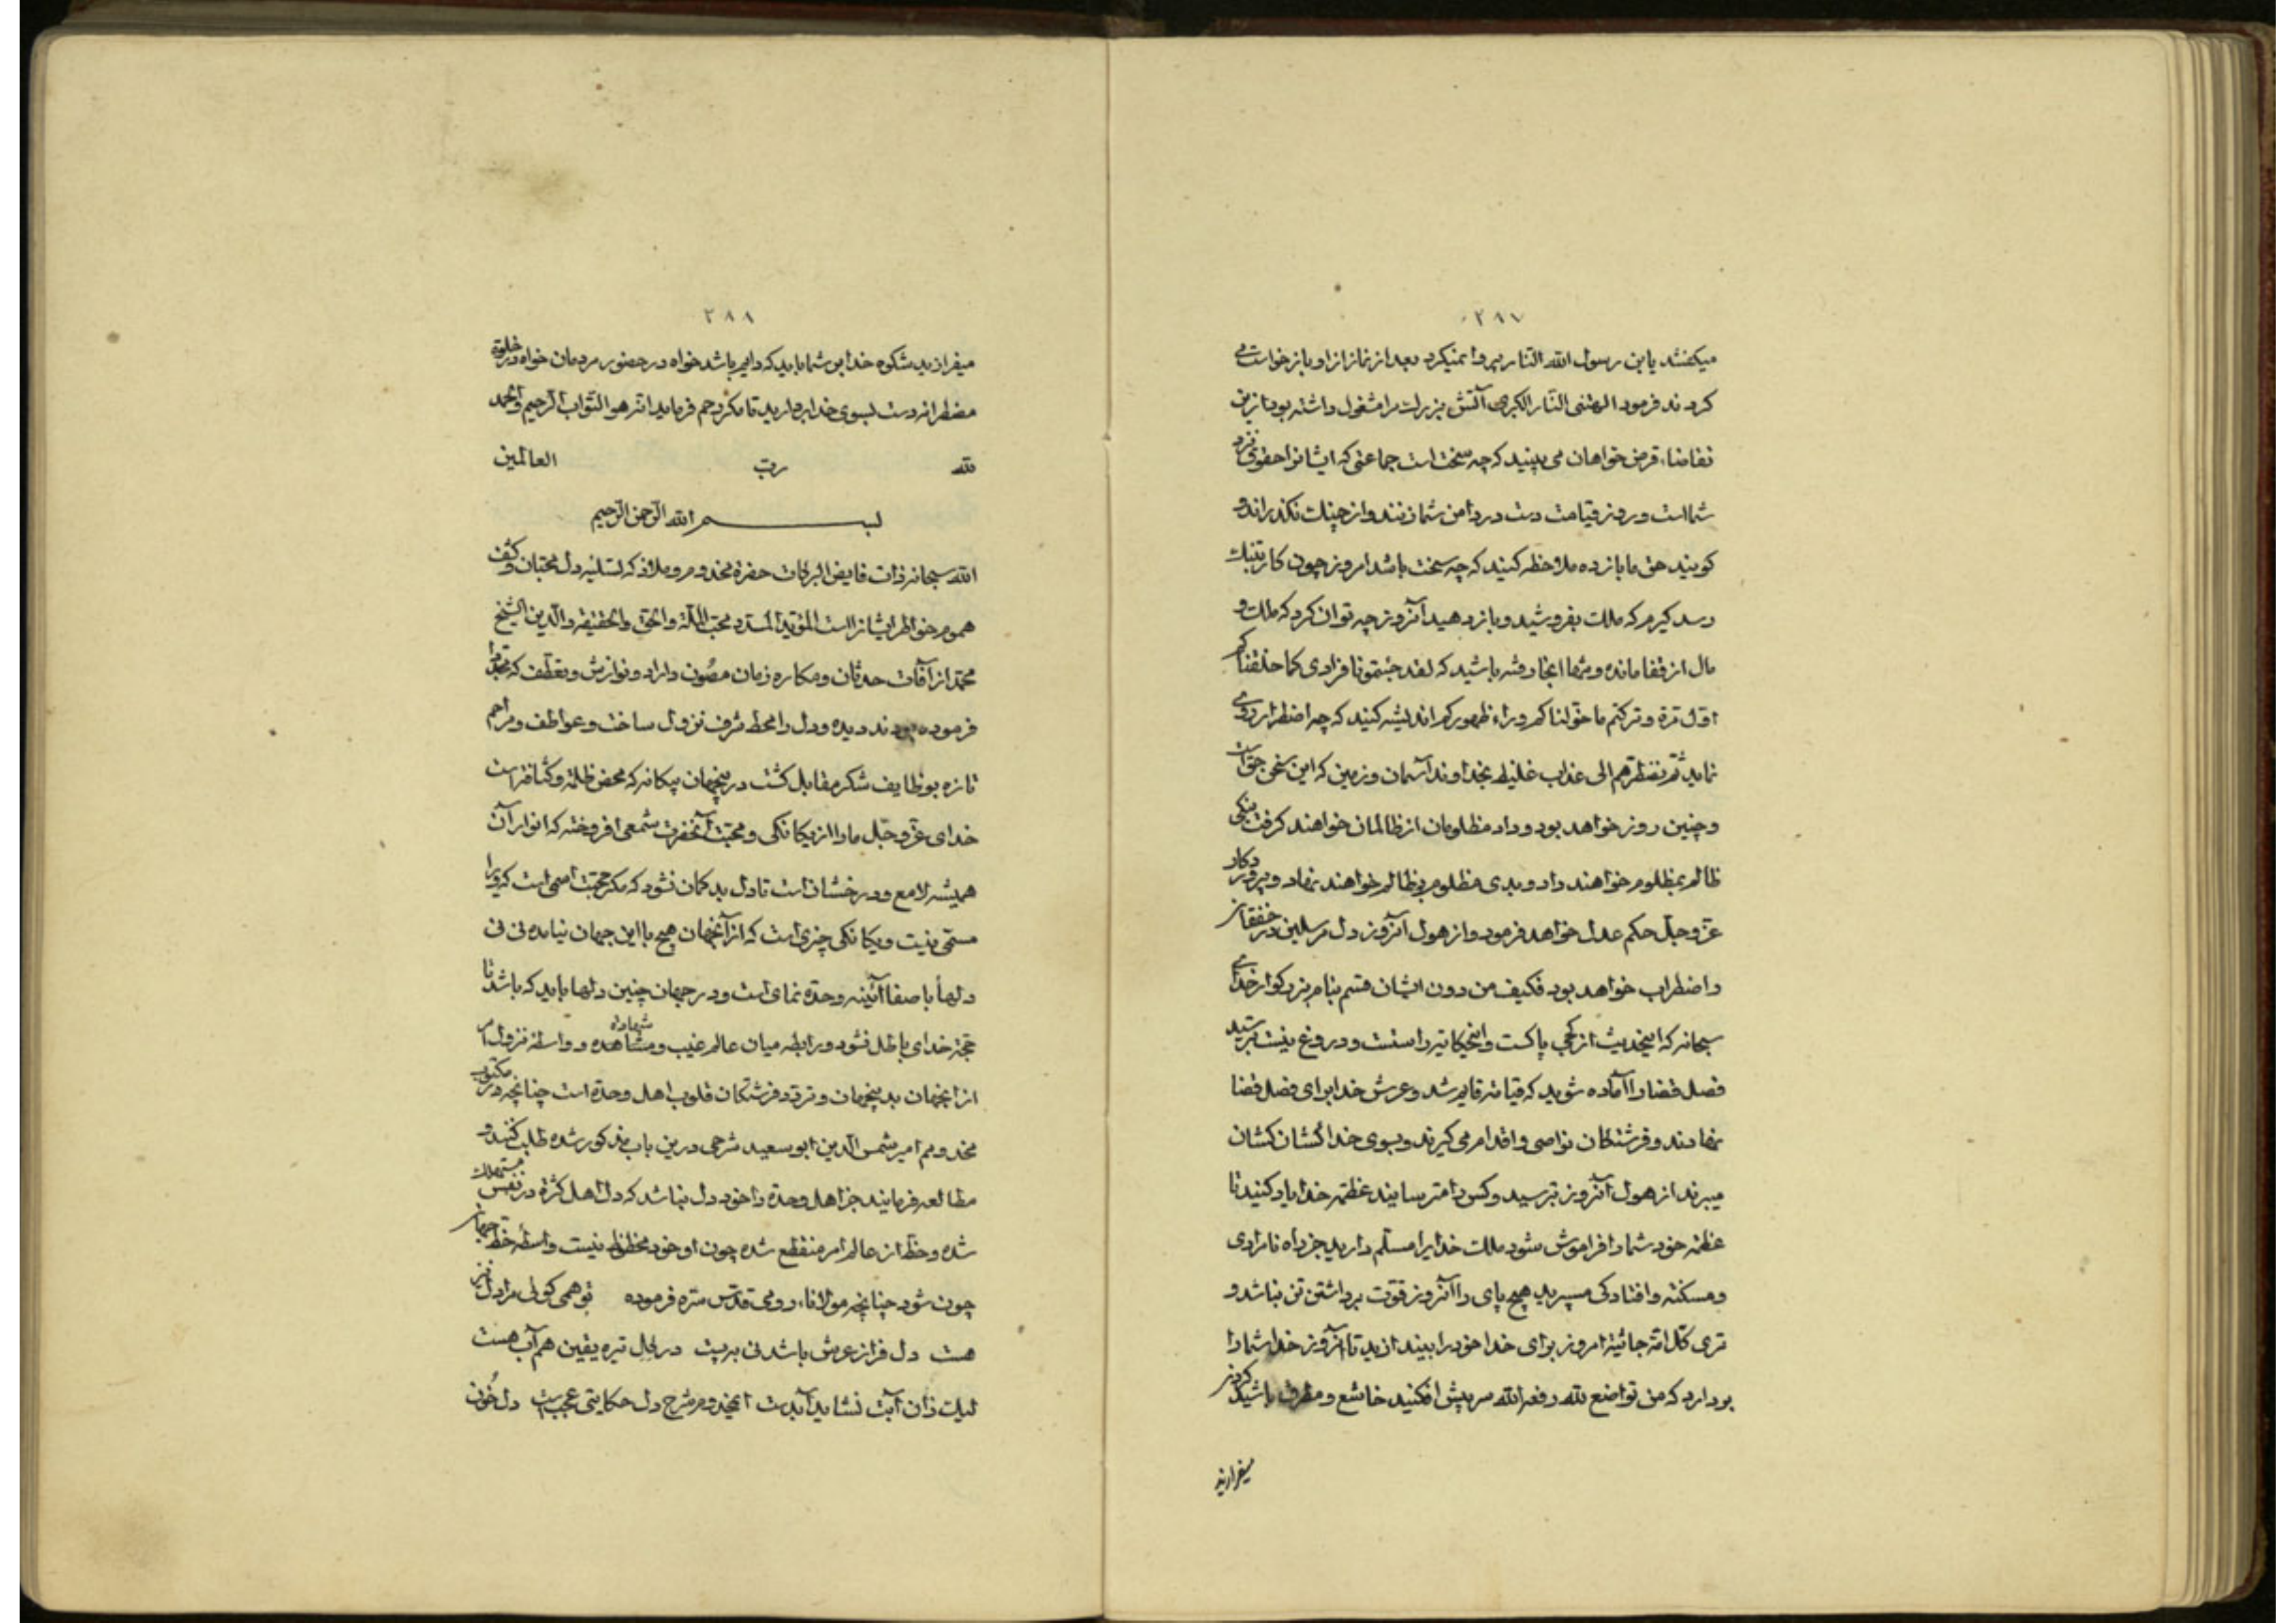 ٢٨٧
میکفتند یا ابن رسول الله النار پروا نمیکرد بعد از نماز ازاو باز خواست می
کردند فرمود الهتنی النار الکبری آتش بزرکت مرا مشغول داشته بود ازین
تقاضاء قرض خواهان می بینید که چه سخت است جماعتی که ایشانرا حقوق نزد
شماست و روز قیامت دست در دامن شما زنند و از چنک نکذرانند و
کویند حق ما باز ده ملاحظه کنید که چه سخت باشد امروز چون کار بتنک
رسد کیرم که ملک بفروشید و باز دهید آنروز چه توان کرد که ملک و
مال از قفا مانده و شما آنجا رفته باشید که لقد جئتمونا فرادی کما خلقناکم
اول مرة و ترکتم ما خولناکم وراء ظهورکم اندیشه کنید که چه اضطرار روی
نماید ثم نضطرهم الی عذاب غلیظ بخداوند آسمان و زمین که این سخن حق است
و چنین روز خواهد بود و داد مظلومان از ظالمان خواهند کرفت نیکی
ظالم بمظلوم خواهند داد و بدی مظلوم بر ظالم خواهند نهاد و پروردکار
عز و جل حکم عدل خواهد فرمود و از هول آنروز دل مرسلین در خفقان
و اضطراب خواهد بود فکیف من دون ایشان قسم بنام بزرکوار خدای
سبحانه که اینحدیث از کجی پاکست و اینحکایت راستست و دروغ نیست بترسید
فصل قضا را آماده شوید که قیامة قایم شد و عرش خدا برای فصل قضا
نهادند و فرشتکان نواصی و اقدام می کیرند و بسوی خدا کشان کشان
میبرند از هول آنروز بترسید و کس را مترسانید عظمة خدا یاد کنید تا
عظمة خود شما را فراموش شود ملک خدایرا مسلم دارید جز راه نامرادی
و مسکنة و افتادکی مسپرید هیچ پای را آنروز قوت برداشتن تن نباشد و
تری کل امة جاثیة امروز برای خدا خود را بیندازید تا آنروز خدا شما را
بردارد که من تواضع لله رفعه الله سر پیش افکنید خاشع و مطرق باشید کردن
میفرازید
٢٨٨
میفرازید شکوه خدا بر شما باید که دایم باشد خواه در حضور مردمان خواه در خلوة
مضطرانه دست بسوی خدا بردارید تا مکر رحم فرماید انه هو التواب الرحیم والحمد
لله رب العالمین
بسم الله الرحمن الرحیم
الله سبحانه ذات فایض البرکات حضرة مخدوم و ملاذ که تسلیه دل محبان و کشف
هموم خواطر ایشانراست المؤید المسدد محب الملة والحق والحقیقة والدین الشیخ
محمد از آفات حدثان و مکاره زمان مصون داراد و نوازش و تعطف که مجددا
فرموده بودند دیده و دل را محط شرف نزول ساخت و عواطف و مراحم
تازه بوظایف شکر مقابل کشت درینجهان بیکانه که محض ظلمة و کثافتست
خدای عز و جل ما را از یکانکی و محبت آنحضرت شمعی افروخته که انوار آن
همیشه لامع و درخشان است تا دل بد کمان نشود که مکر محبت اسمی است که ویرا
مسمی نیست و یکانکی چیزی است که از آنجهان هیچ با این جهان نیامده نی نی
دلها با صفا آئینه وحدة نمای است و در جهان چنین دلها باید که باشد تا
حجة خدای باطل نشود و رابطه میان عالم غیب و مشاهده شهادة و واسطه نزول امر
از آنجهان بدینجهان و تردد فرشتکان قلوب اهل وحدة است چنانچه در مکتوب
مخدومم امیر شمس الدین ابو سعید شرحی درین باب مذکور شده طلب کنند و
مطالعه فرمایند جز اهل وحدة را خود دل نباشد که دل اهل کثرة در نفس مستهلک
شده و حظ از عالم امر منقطع شده چون او خود محظوظ نیست واسطه حظ جهان
چون شود چنانچه مولاناء رومی قدس سره فرموده تو همی کوئی مرا دل نیز
هست دل فراز عرش باشد نی بپست در کل تیره یقین هم آب هست
لیک زان آبت نشاید آبدست ایمخدوم شرح دل حکایتی عجب است دل خون